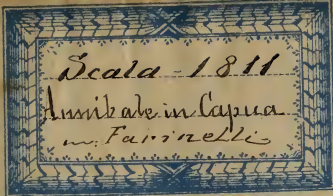 Scala - 1811
Annibale in Capua
m: Farinelli